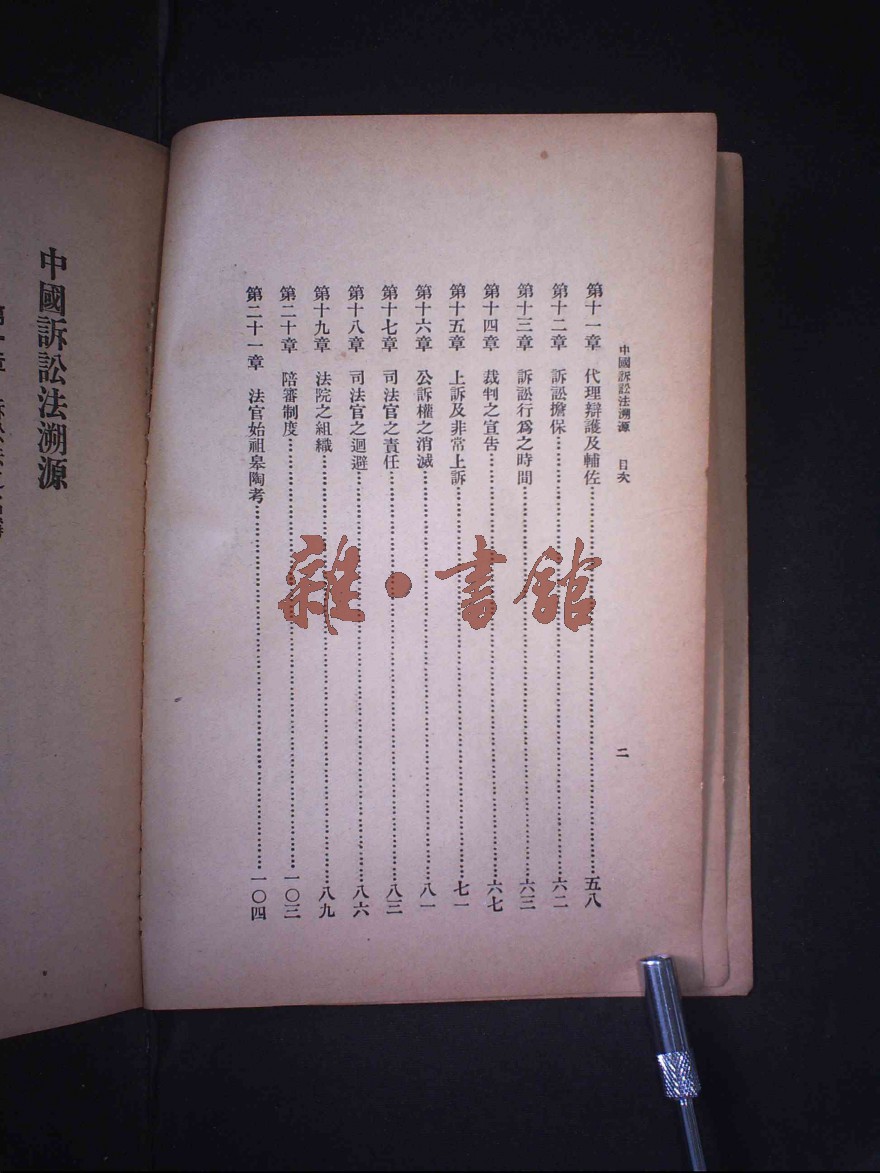 中國訴訟法溯源 目次 二
第十一章 代理辯護及輔佐……五八
第十二章 訴訟擔保……六二
第十三章 訴訟行爲之時間……六三
第十四章 裁判之宣告……六七
第十五章 上訴及非常上訴……七一
第十六章 公訴權之消滅……八一
第十七章 司法官之責任……八三
第十八章 司法官之迴避……八六
第十九章 法院之組織……八九
第二十章 陪審制度……一〇三
第二十一章 法官始祖皋陶考……一〇四
中國訴訟法溯源
雜·書館